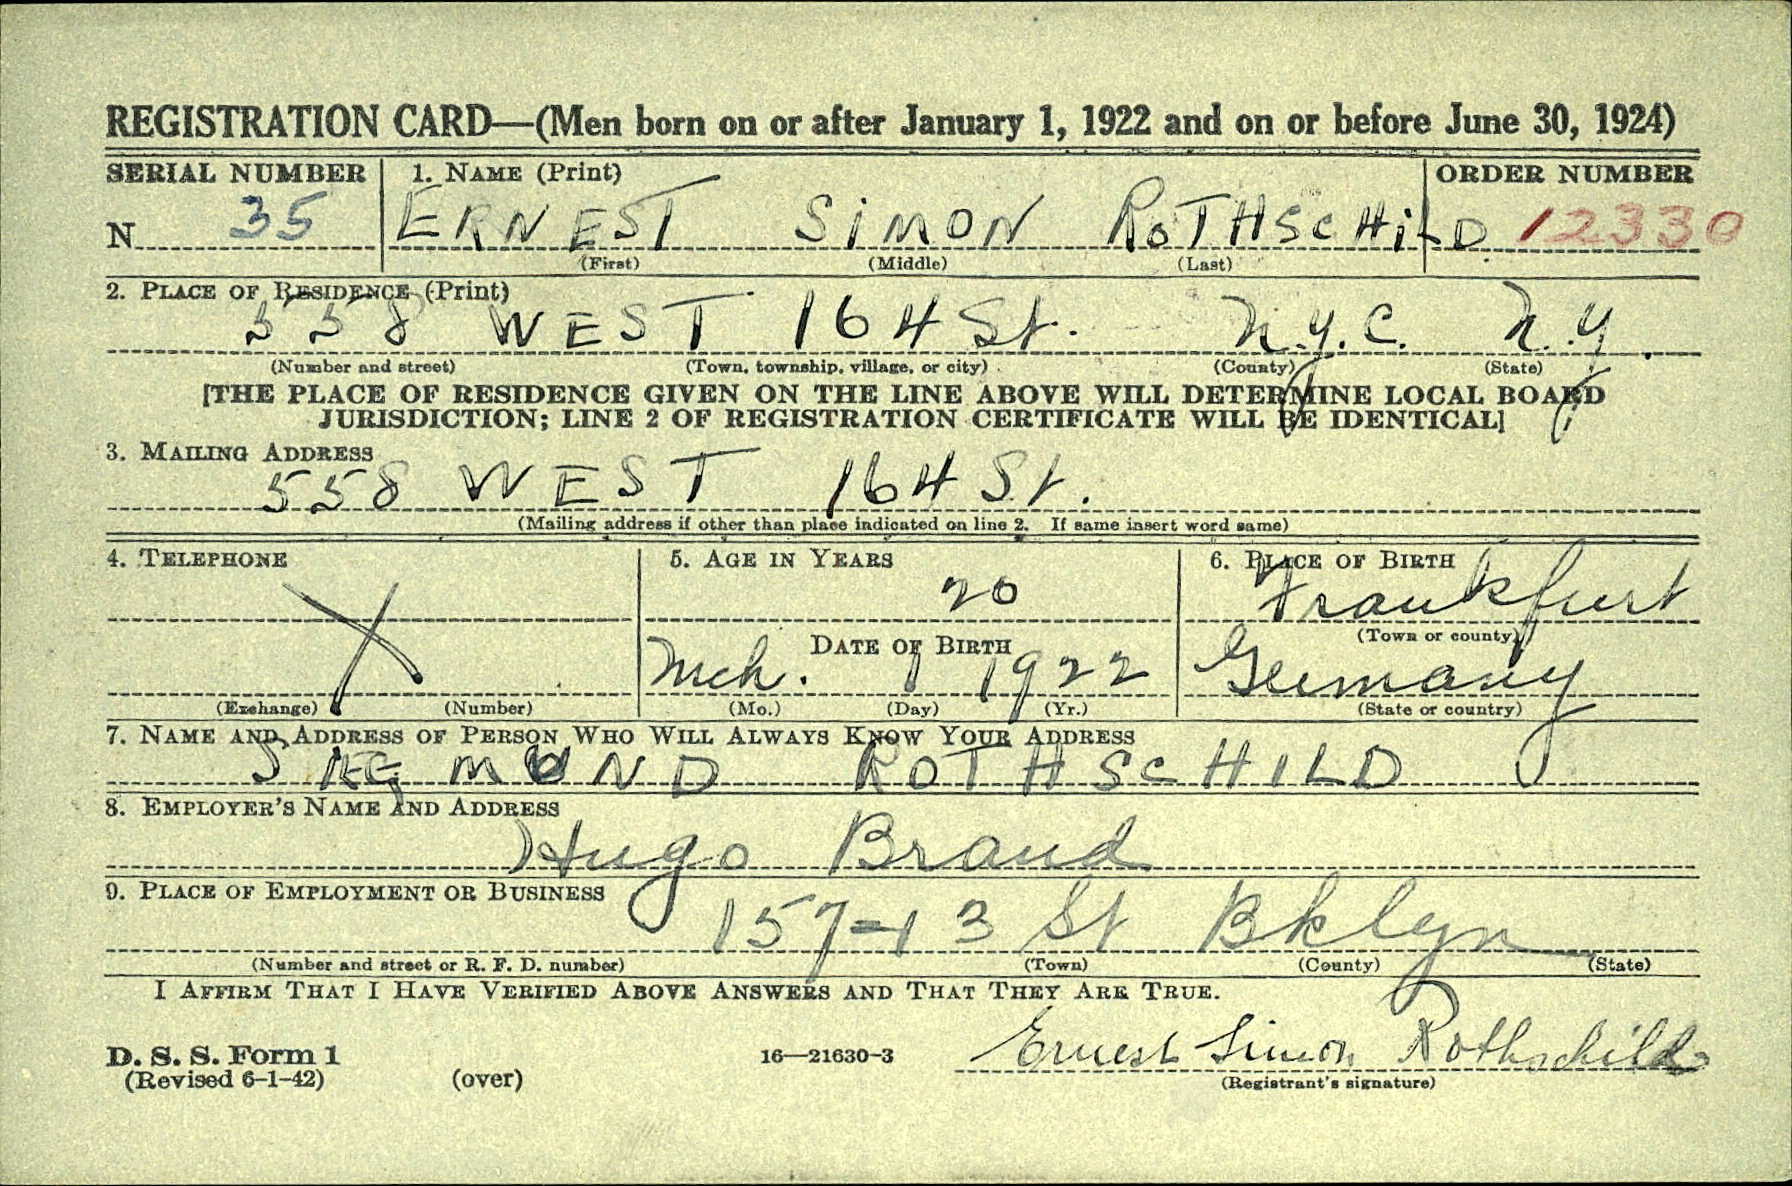 REGISTRATION CARD—(Men born on or after January 1, 1922 and on or before June 30, 1924)
SERIAL NUMBER 1. NAME (Print) ORDER NUMBER
N 35 ERNEST SIMON ROTHSCHILD 12330
(First) (Middle) (Last)
2. PLACE OF RESIDENCE (Print)
558 WEST 164 St. N.Y.C. N.Y.
(Number and street) (Town, township, village, or city) (County) (State)
[THE PLACE OF RESIDENCE GIVEN ON THE LINE ABOVE WILL DETERMINE LOCAL BOARD
JURISDICTION; LINE 2 OF REGISTRATION CERTIFICATE WILL BE IDENTICAL]
3. MAILING ADDRESS
558 WEST 164 St.
(Mailing address if other than place indicated on line 2. If same insert word same)
4. TELEPHONE 5. AGE IN YEARS 6. PLACE OF BIRTH
20 Frankfurt
(Town or county)
DATE OF BIRTH
X Mch. 1 1922 Germany
(Exchange) (Number) (Mo.) (Day) (Yr.) (State or country)
7. NAME AND ADDRESS OF PERSON WHO WILL ALWAYS KNOW YOUR ADDRESS
ROTHSCHILD
8. EMPLOYER'S NAME AND ADDRESS
Hugo Brand
9. PLACE OF EMPLOYMENT OR BUSINESS
157-13 St Bklyn
(Number and street or R. F. D. number) (Town) (County) (State)
I AFFIRM THAT I HAVE VERIFIED ABOVE ANSWERS AND THAT THEY ARE TRUE.
D. S. S. Form 1 16—21630-3 Ernest Simon Rothschild
(Revised 6-1-42) (over) (Registrant's signature)